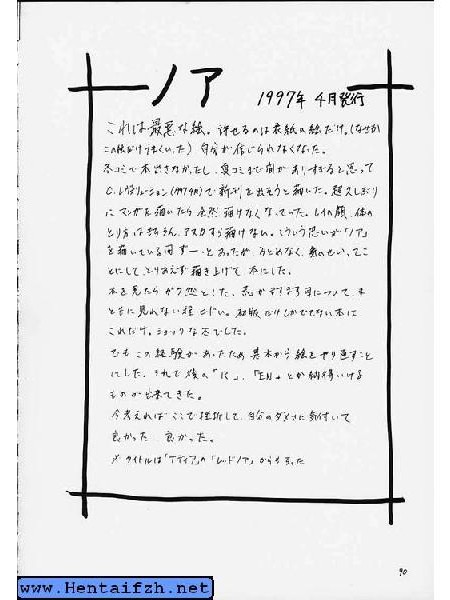 ノア
1997年 4月発行
これは最悪な絵。許せるのは表紙の絵だけ。(なぜか
この絵だけうまくいった) 自分が信じられなくなった。
冬コミで本出さなかったし、夏コミまで間がありすぎると思って
C.レヴォリューション
で新刊を出そうと描いた。超久しぶり
にマンガを描いたら全然描けなくなっていた。レイの顔、体の
とり方はもちろん、アスカすら描けない。こういう思いが「ノア」
を描いている間ずーっとあったが
気のせいってこ
とにして、とりあえず描き上げて本にした。
本を見たらガク然とした。
ま
ともに見れない程ニガい。初版だけしかでてない本は
これだけ。ショックな本でした。
でもこの経験があったため基本から絵をやり直すこと
にした。それで後の
とか納得いける
ものが出来てきた。
今考えればここで挫折して、自分のダメさに気付いて
良かった 良かった。
タイトルは
の「レッドノア」からもらった
90
www.Hentaifzh.net